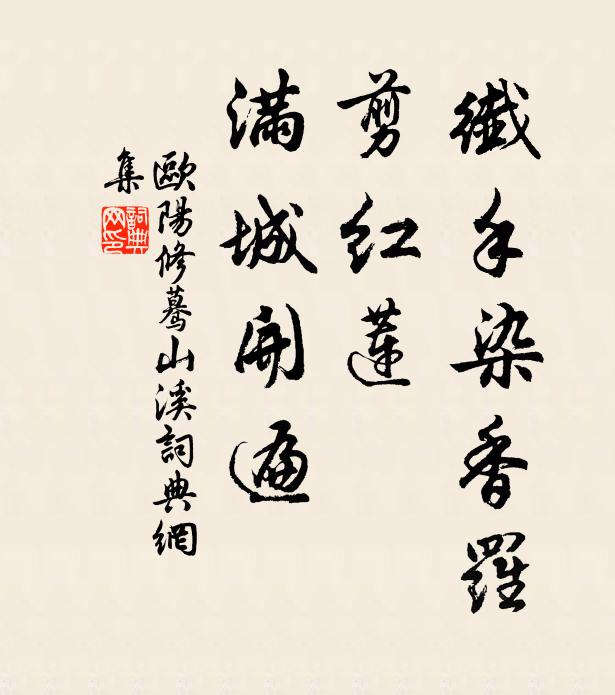 纖手染香羅
剪紅蓮
滿城開遍
歐陽修蓦山溪詞典網
集
詞典網印